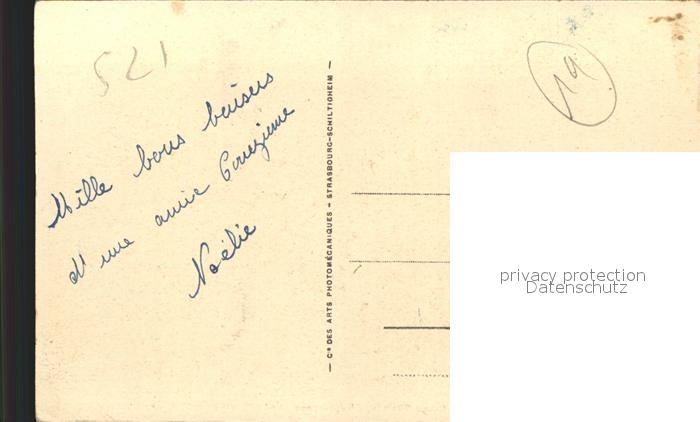 521
19
Mille bons baisers
d'une amie Corrézienne
Noélie
— Cie DES ARTS PHOTOMÉCANIQUES - STRASBOURG-SCHILTIGHEIM —
privacy protection
Datenschutz